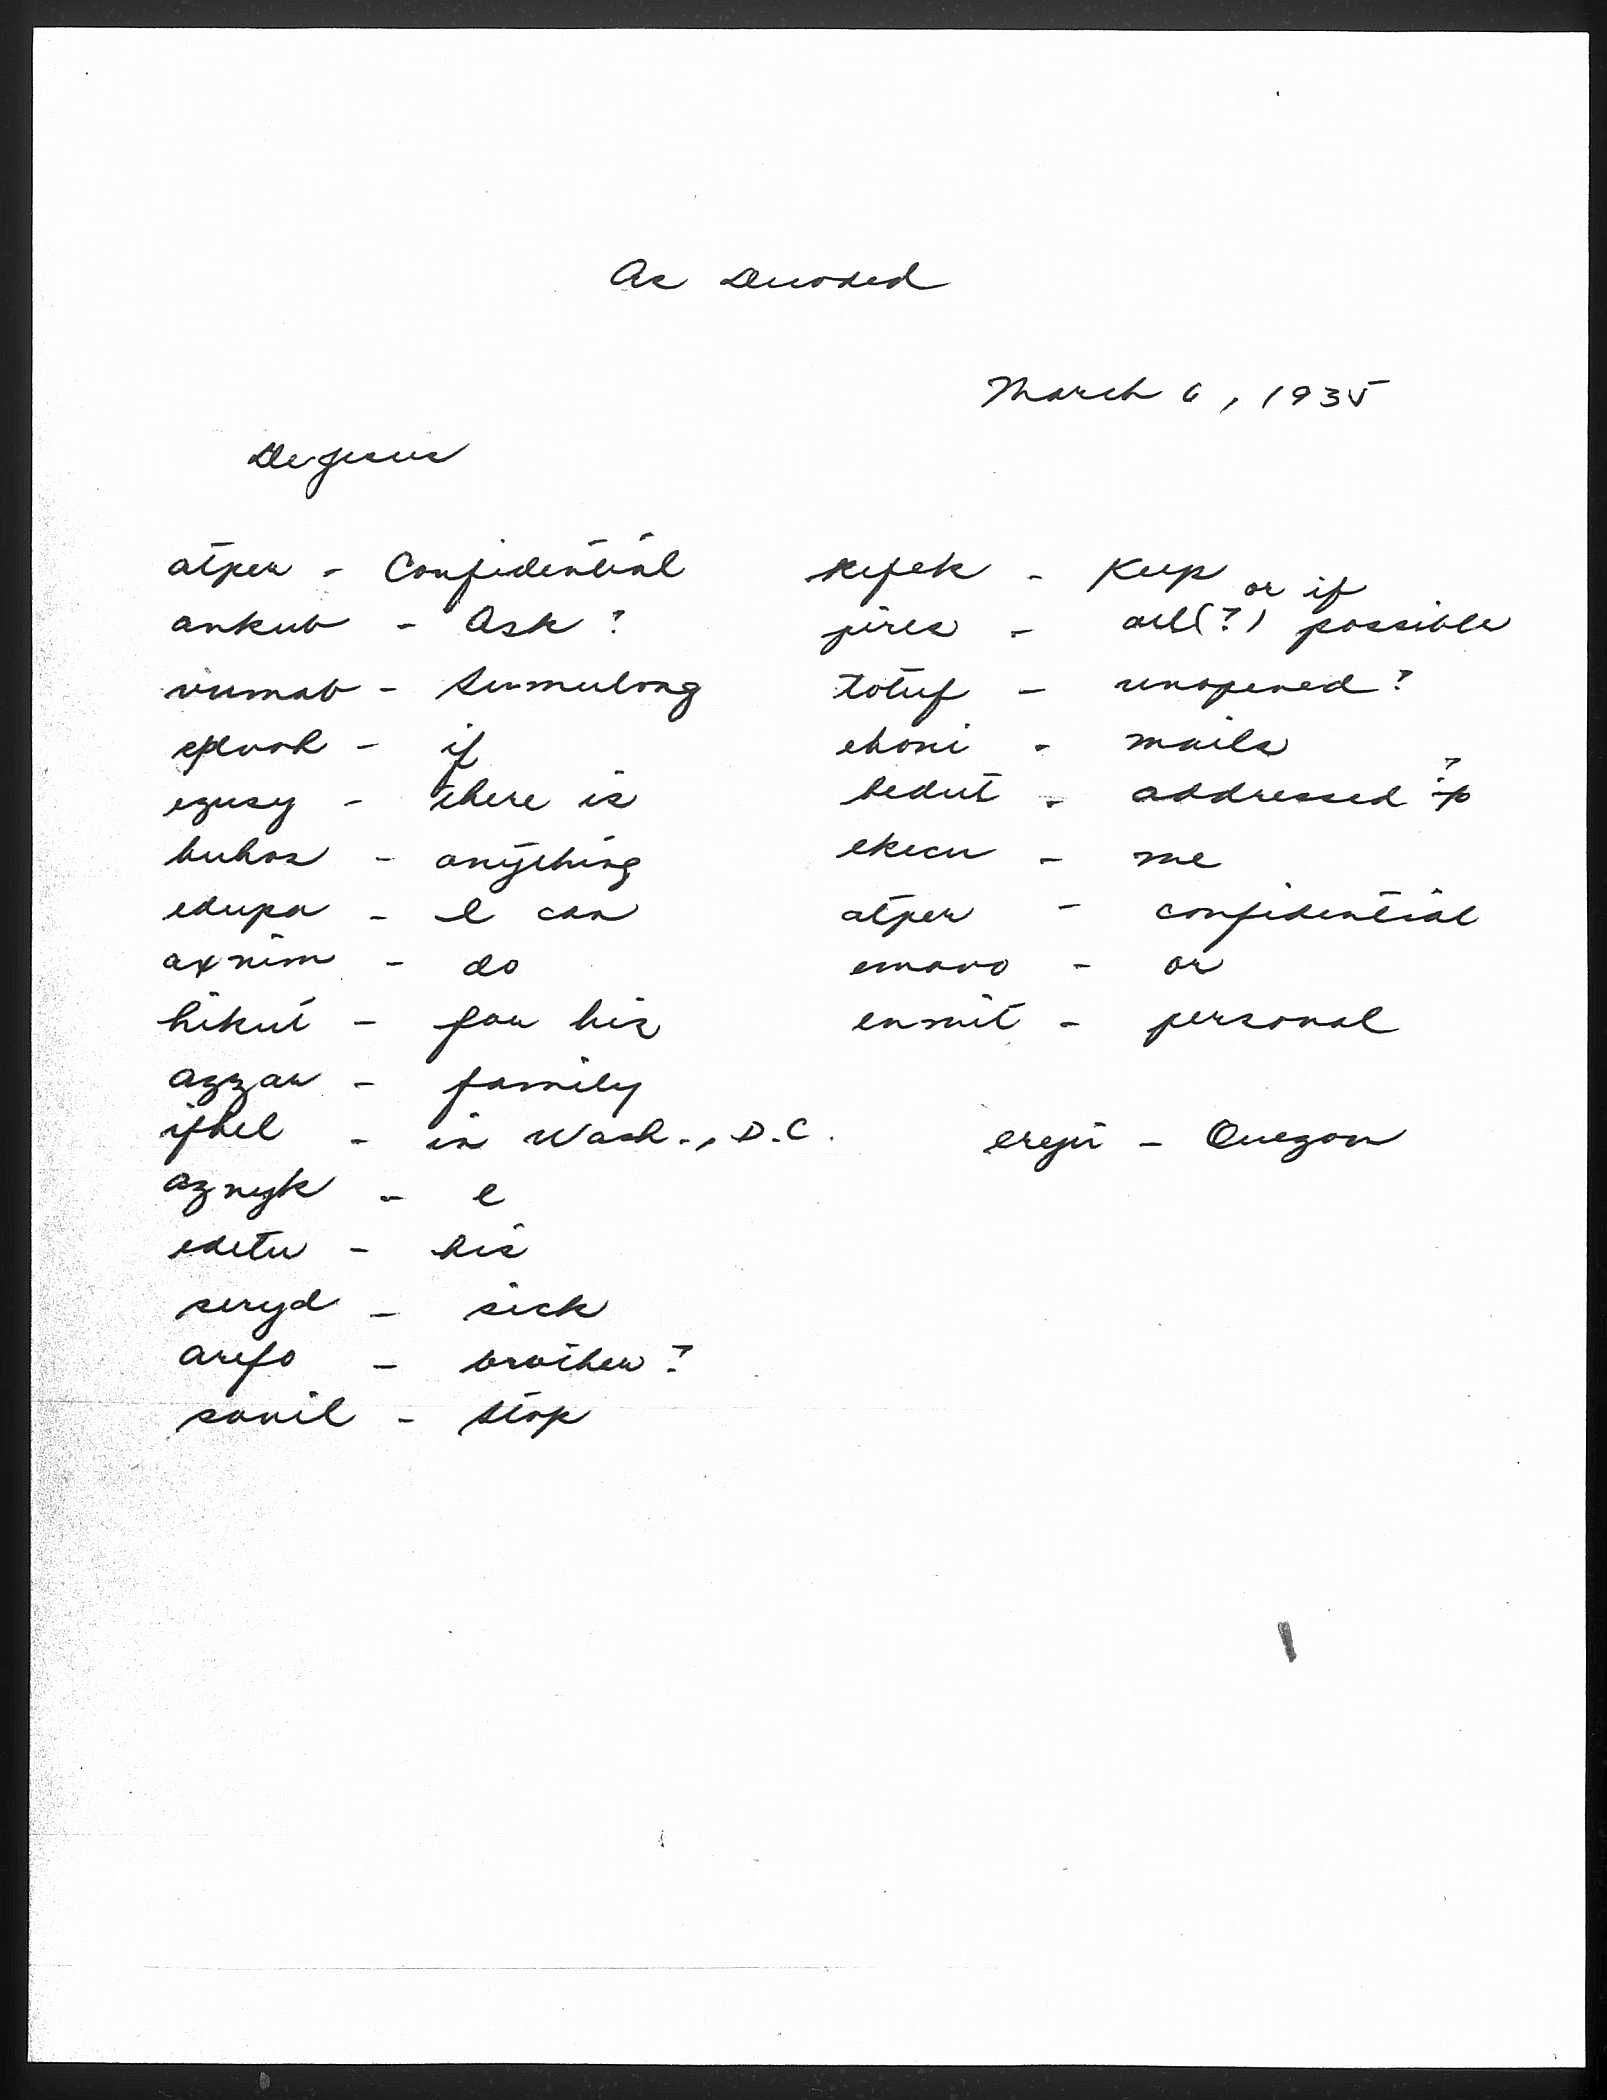 As Decoded
March 6, 1935
De Jesus
atper - Confidential
ankub - Ask ?
vumab - Sumulong
if
ezusy - there is
buhos - anything
edupa - I can
axnim - do
hikut - for his
azzar - family
ifhel - in Wash., D.C.
aznyk - I
edetu - his
seryd - sick
arefo - brother ?
sovil - stop
kefek - Keep
or if
jires - all(?) possible
totuf - unopened ?
ehoni - mails
bedut - addressed to ?
ekecu - me
atper - confidential
emovo - or
ensnit - personal
- Quezon